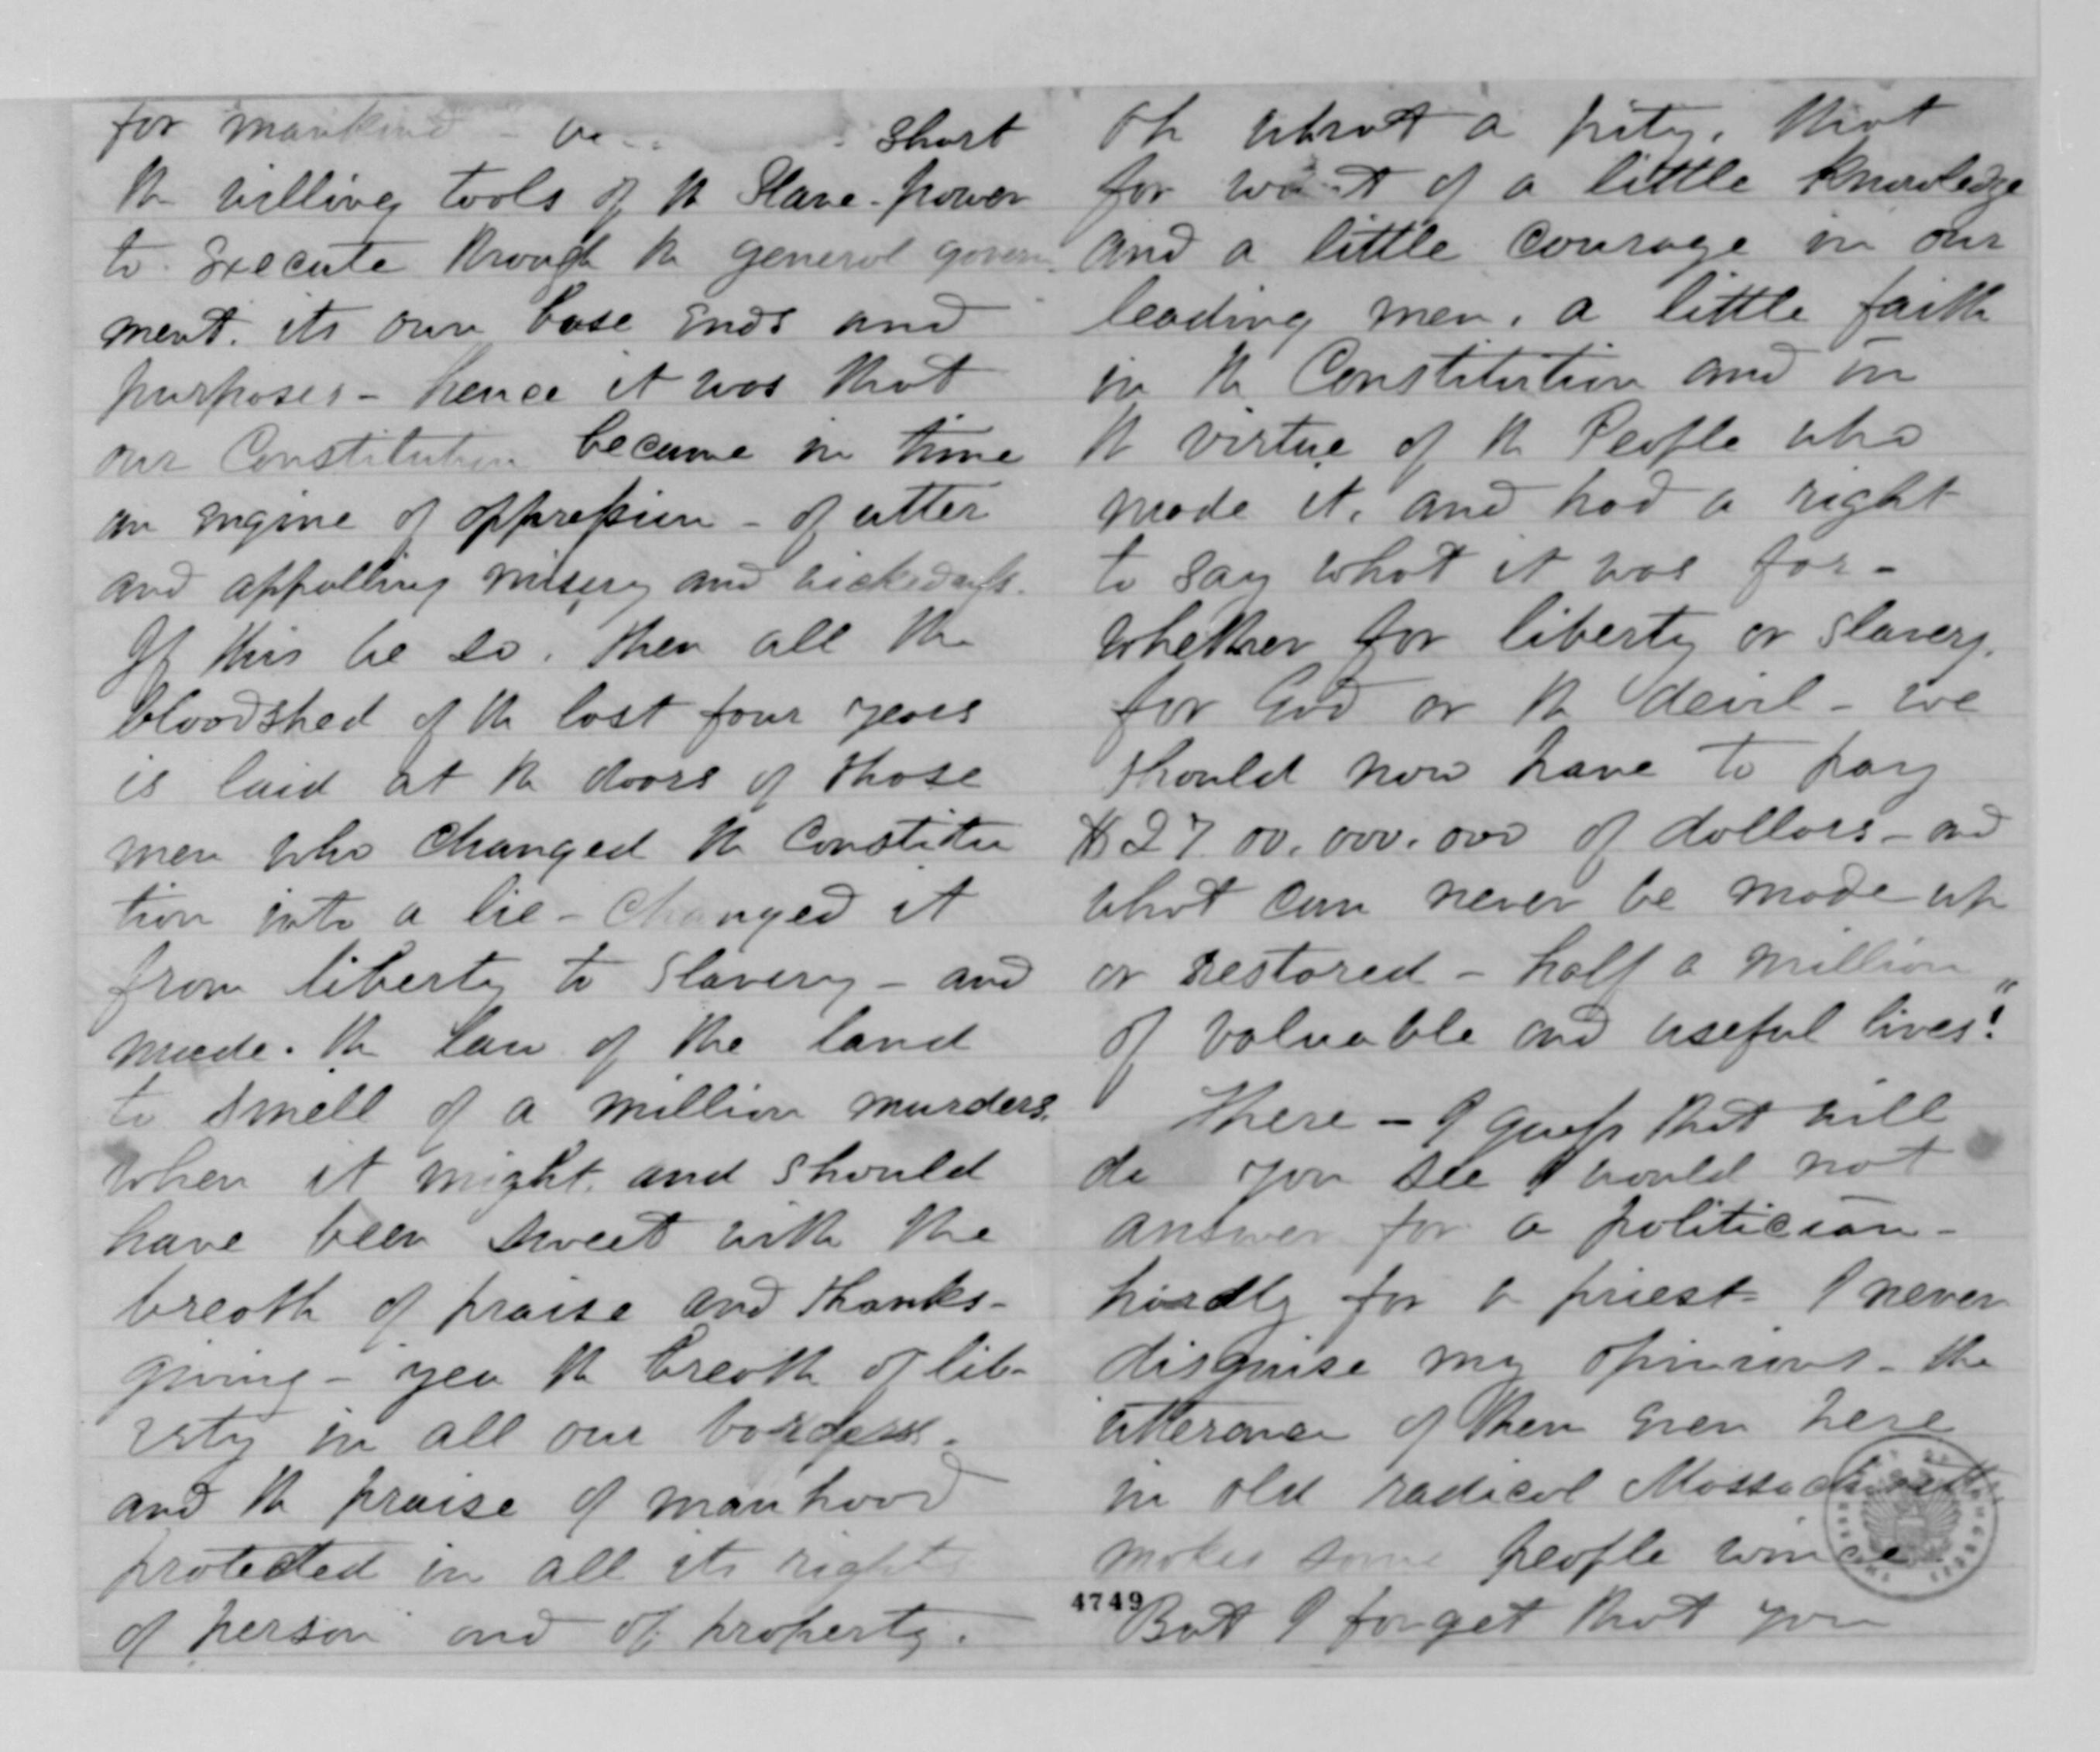 for mankind - short
the willing tools of the Slave-power
to execute through the general govern
ment. its own base ends and
purposes - hence it was that
our Constitution became in time
an engine of oppression - of utter
and appalling misery and wickedness.
If this be so, then all the
bloodshed of the last four years
is laid at the doors of those
men who changed the Constitu
tion into a lie - changed it
from liberty to Slavery - and
made the law of the land
to smell of a million murders,
when it might and should
have been sweet with the
breath of praise and thanks-
giving - yea the breath of lib-
erty in all our borders.
and the praise of manhood
protected in all its rights
of person and of property.
Oh what a pity, that
for want of a little knowledge
and a little courage in our
leading men, a little faith
in the Constitution and in
the virtue of the People who
made it, and had a right
to say what it was for -
whether for liberty or slavery,
for God or the devil - we
should now have to pay
$2700,000,000 of dollars - and
what can never be made up
or restored - half a million
of valuable and useful lives!"
There - I guess that will
do you see I would not
answer for a politician -
hardly for a priest - I never
disguise my opinions - the
utterance of them even here
in old radical Massachusetts
makes some people wince
4749
But I forget that you